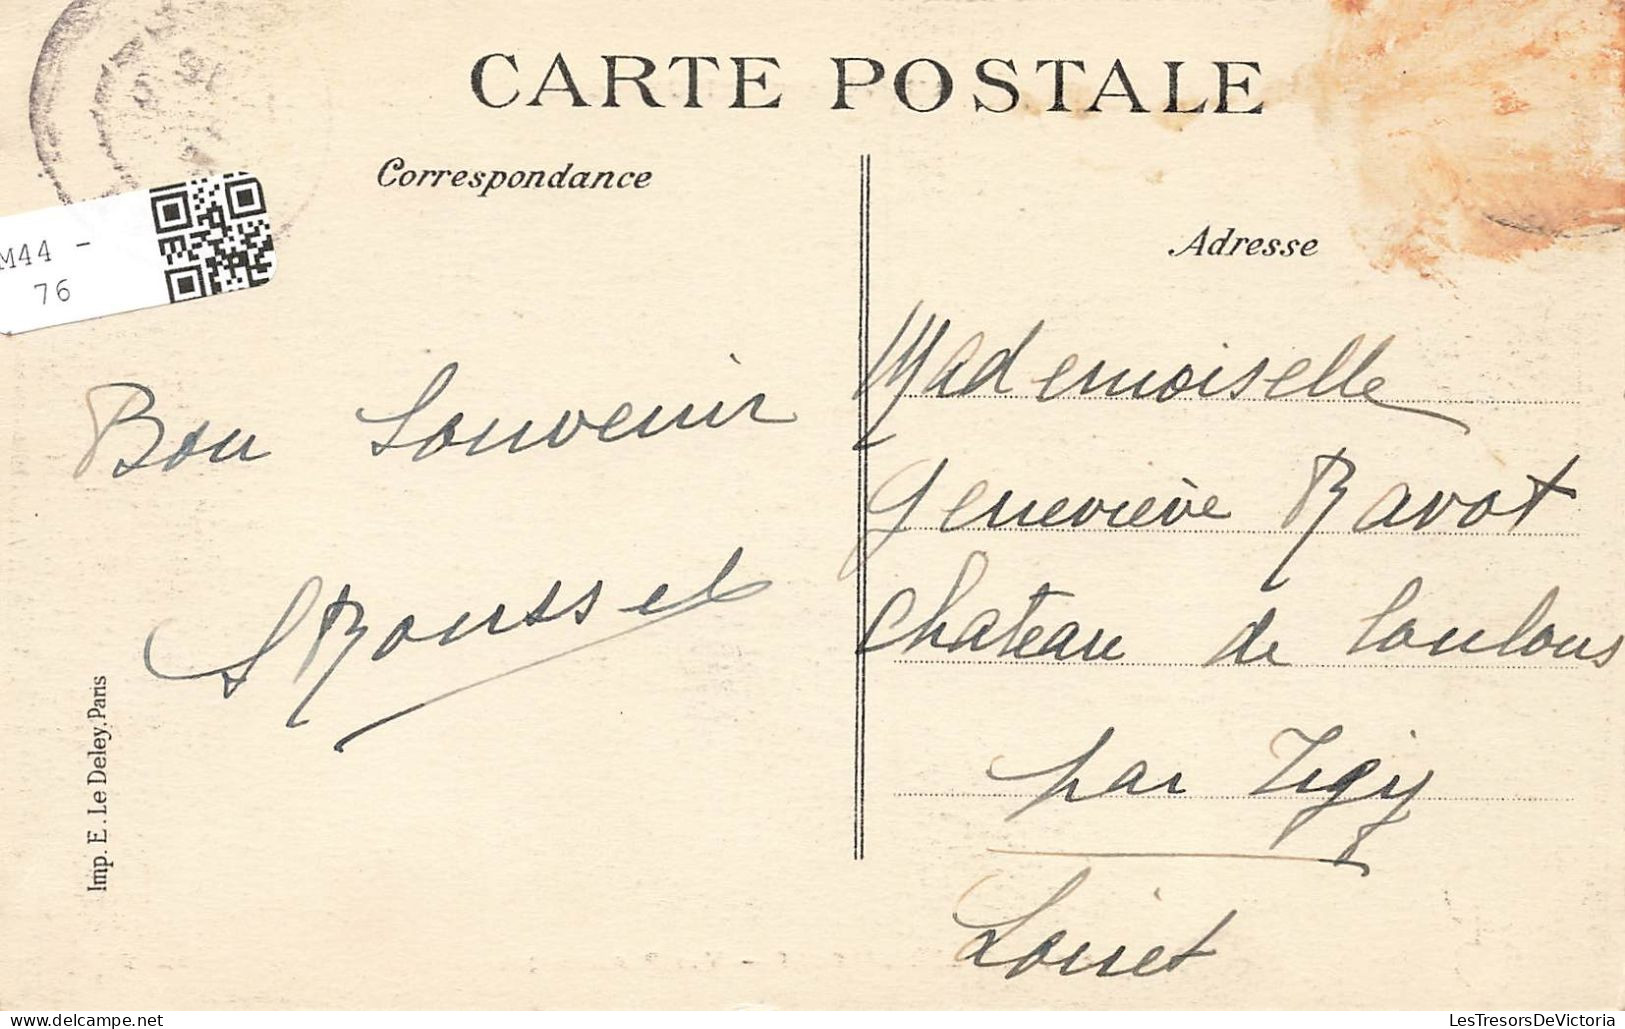 CARTE POSTALE
Correspondance
Adresse
M44 -
76
Bon Souvenir
S Roussel
Mademoiselle
Geneviève Ravot
Chateau de Toulons
par Tigy
Loiret
Imp. E. Le Deley, Paris
LesTresorsDeVictoria